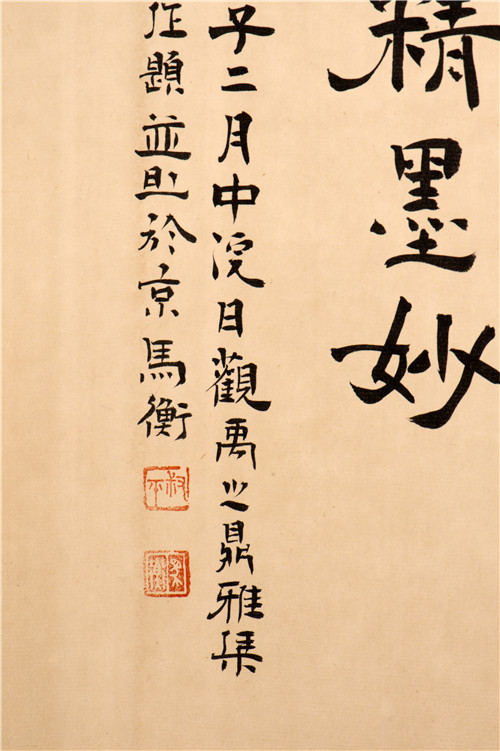 精墨妙
子二月中浣日觀禹之鼎雅集
作題並於京馬衡
叔平
馬衡